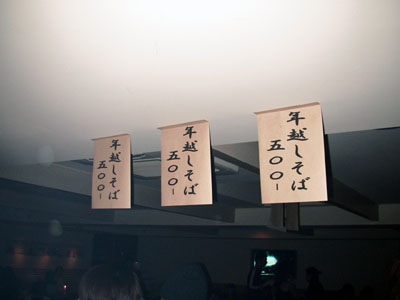 年越しそば
五〇〇-
年越しそば
五〇〇-
年越しそば
五〇〇-